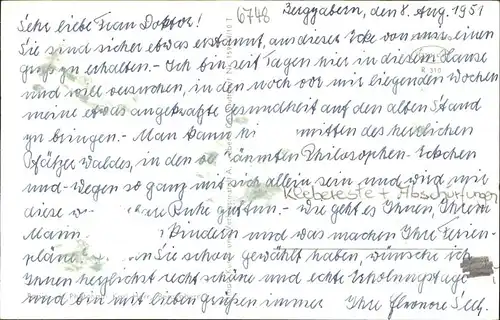 6748
Bergzabern, den 8. Aug. 1951
Sehr liebe Frau Doktor!
Sie sind sicher etwas erstaunt, aus dieser Ecke von mir einen
Gruß zu erhalten. - Ich bin seit Tagen hier in diesem Hause
und will versuchen, in den noch vor mir liegenden Wochen
meine etwas angekratzte Gesundheit auf den alten Stand
zu bringen. - Man kann hi mitten des herrlichen
Pfälzer Waldes, in den ämnten Philosophen-Eckchen
und -Wegen so ganz mit sich allein sein und wird mir
Klebereste + Abschürfungen
diese are Ruhe guttun. - Wie geht es Ihnen, Ihrem
Mann Kindern und was machen Ihre Ferien-
pläne? Sie schon gewählt haben, wünsche ich
Ihnen herzlichst recht schöne und echte Erholungstage
und bin mit lieben Grüßen immer Ihre Eleonore
R 310